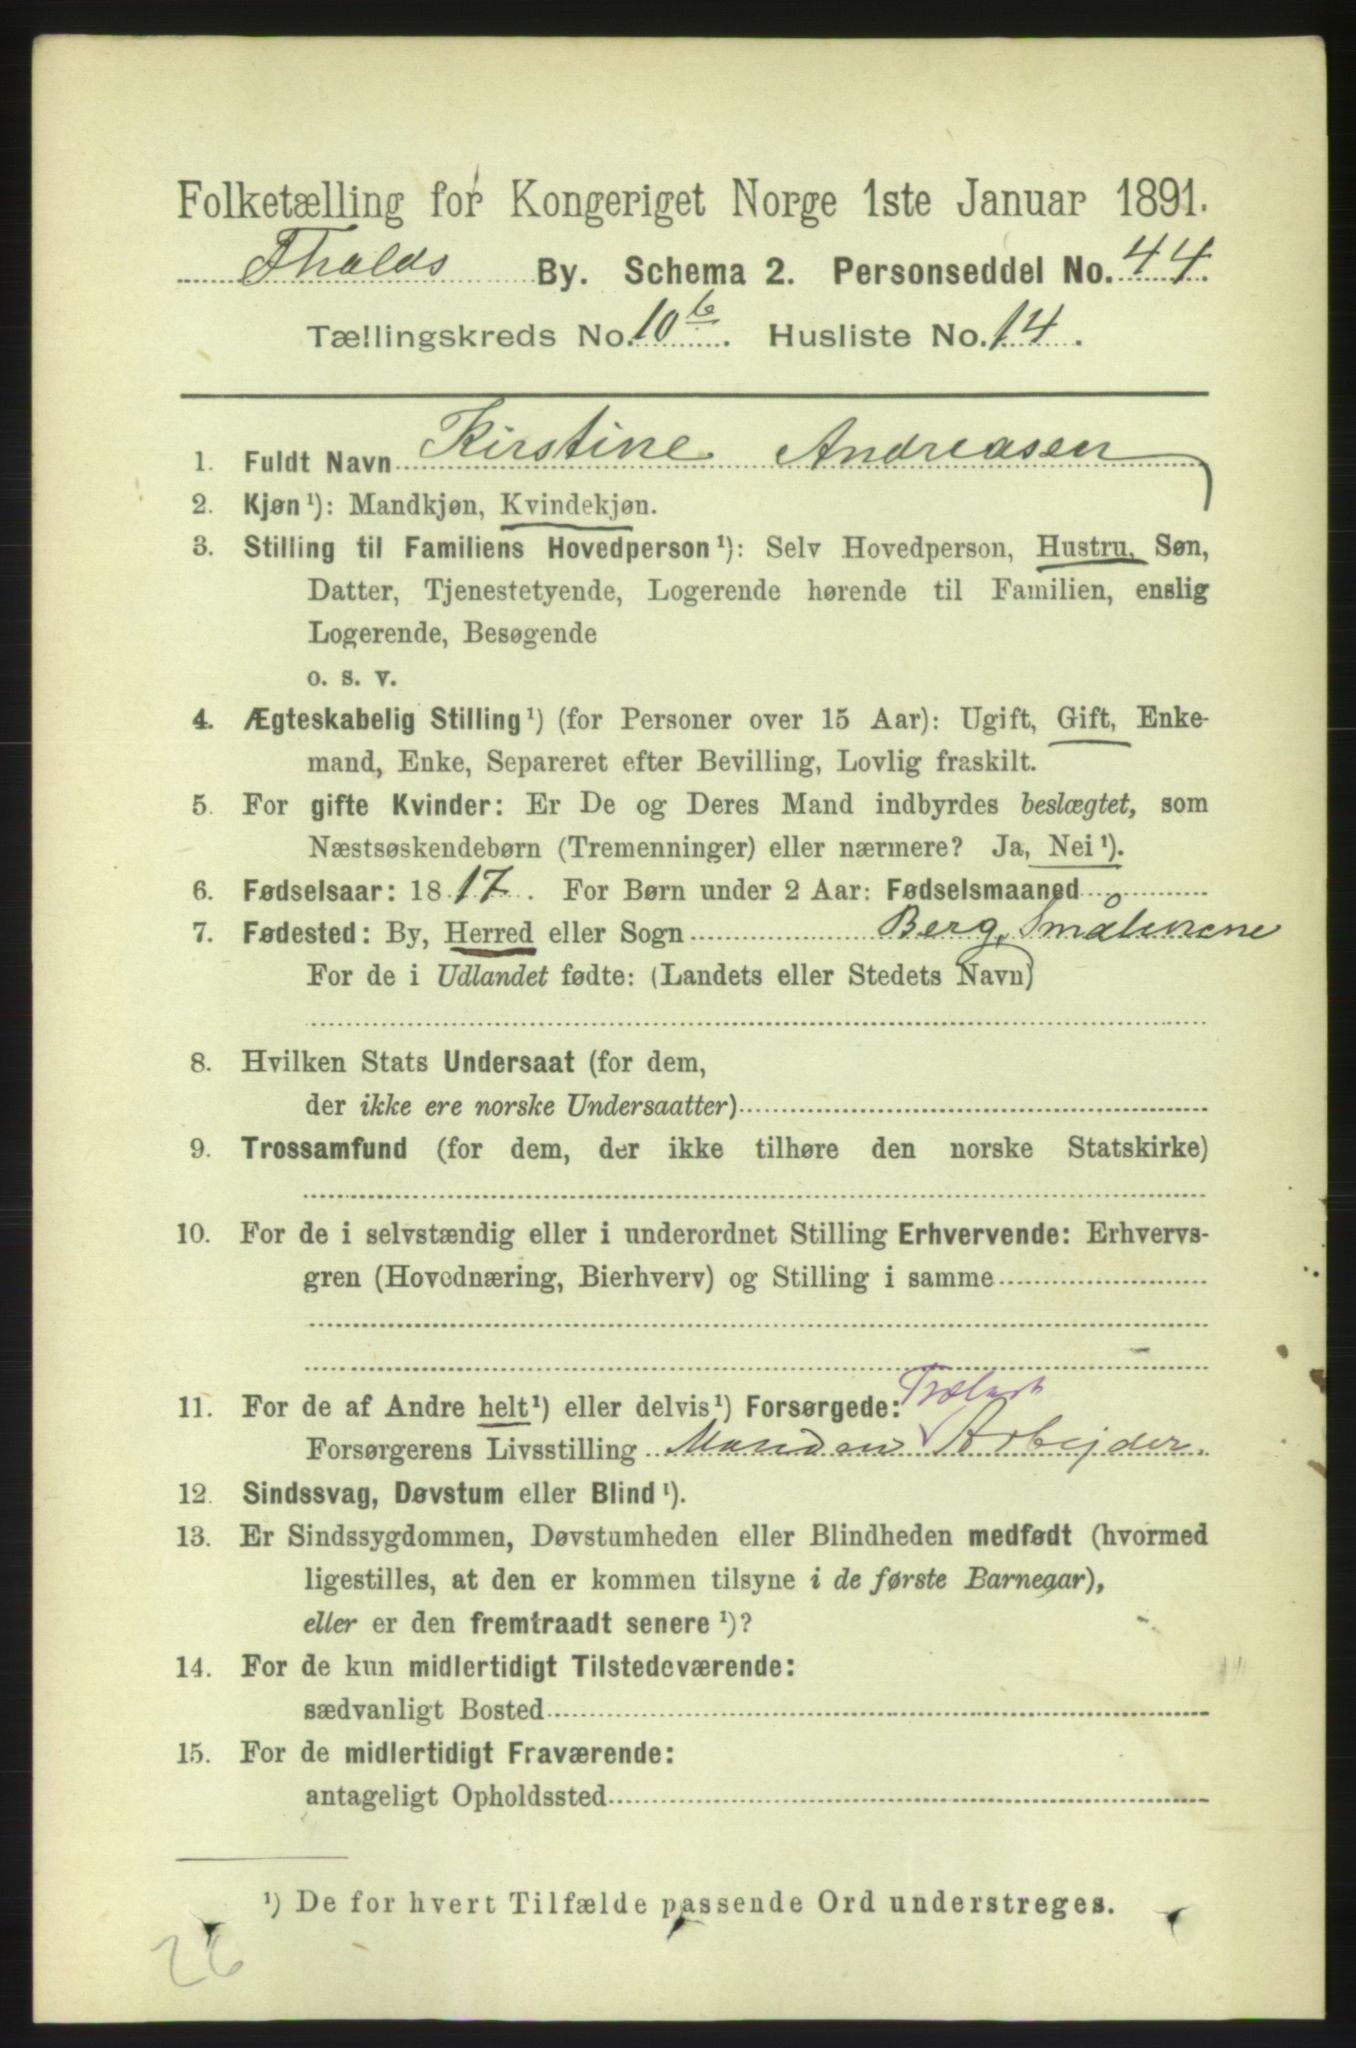 Folketælling for Kongeriget Norge 1ste Januar 1891.
Fhalds By. Schema 2. Personseddel No. 44.
Tællingskreds No. 10 b. Husliste No. 14.
1. Fuldt Navn Kirstine Andreasen
2. Kjøn¹): Mandkjøn, Kvindekjøn.
3. Stilling til Familiens Hovedperson¹): Selv Hovedperson, Hustru, Søn,
Datter, Tjenestetyende, Logerende hørende til Familien, enslig
Logerende, Besøgende
o. s. v.
4. Ægteskabelig Stilling¹) (for Personer over 15 Aar): Ugift, Gift, Enke-
mand, Enke, Separeret efter Bevilling, Lovlig fraskilt.
5. For gifte Kvinder: Er De og Deres Mand indbyrdes beslægtet, som
Næstsøskendebørn (Tremenninger) eller nærmere? Ja, Nei¹).
6. Fødselsaar: 1817. For Børn under 2 Aar: Fødselsmaaned
7. Fødested: By, Herred eller Sogn Berg, Smålenene
For de i Udlandet fødte: (Landets eller Stedets Navn)
8. Hvilken Stats Undersaat (for dem,
der ikke ere norske Undersaatter)
9. Trossamfund (for dem, der ikke tilhøre den norske Statskirke)
10. For de i selvstændig eller i underordnet Stilling Erhvervende: Erhvervs-
gren (Hovednæring, Bierhverv) og Stilling i samme
11. For de af Andre helt¹) eller delvis¹) Forsørgede:
Trælast
Forsørgerens Livsstilling Manden Arbejder.
12. Sindssvag, Døvstum eller Blind¹).
13. Er Sindssygdommen, Døvstumheden eller Blindheden medfødt (hvormed
ligestilles, at den er kommen tilsyne i de første Barneaar),
eller er den fremtraadt senere¹)?
14. For de kun midlertidigt Tilstedeværende:
sædvanligt Bosted
15. For de midlertidigt Fraværende:
antageligt Opholdssted
¹) De for hvert Tilfælde passende Ord understreges.
26